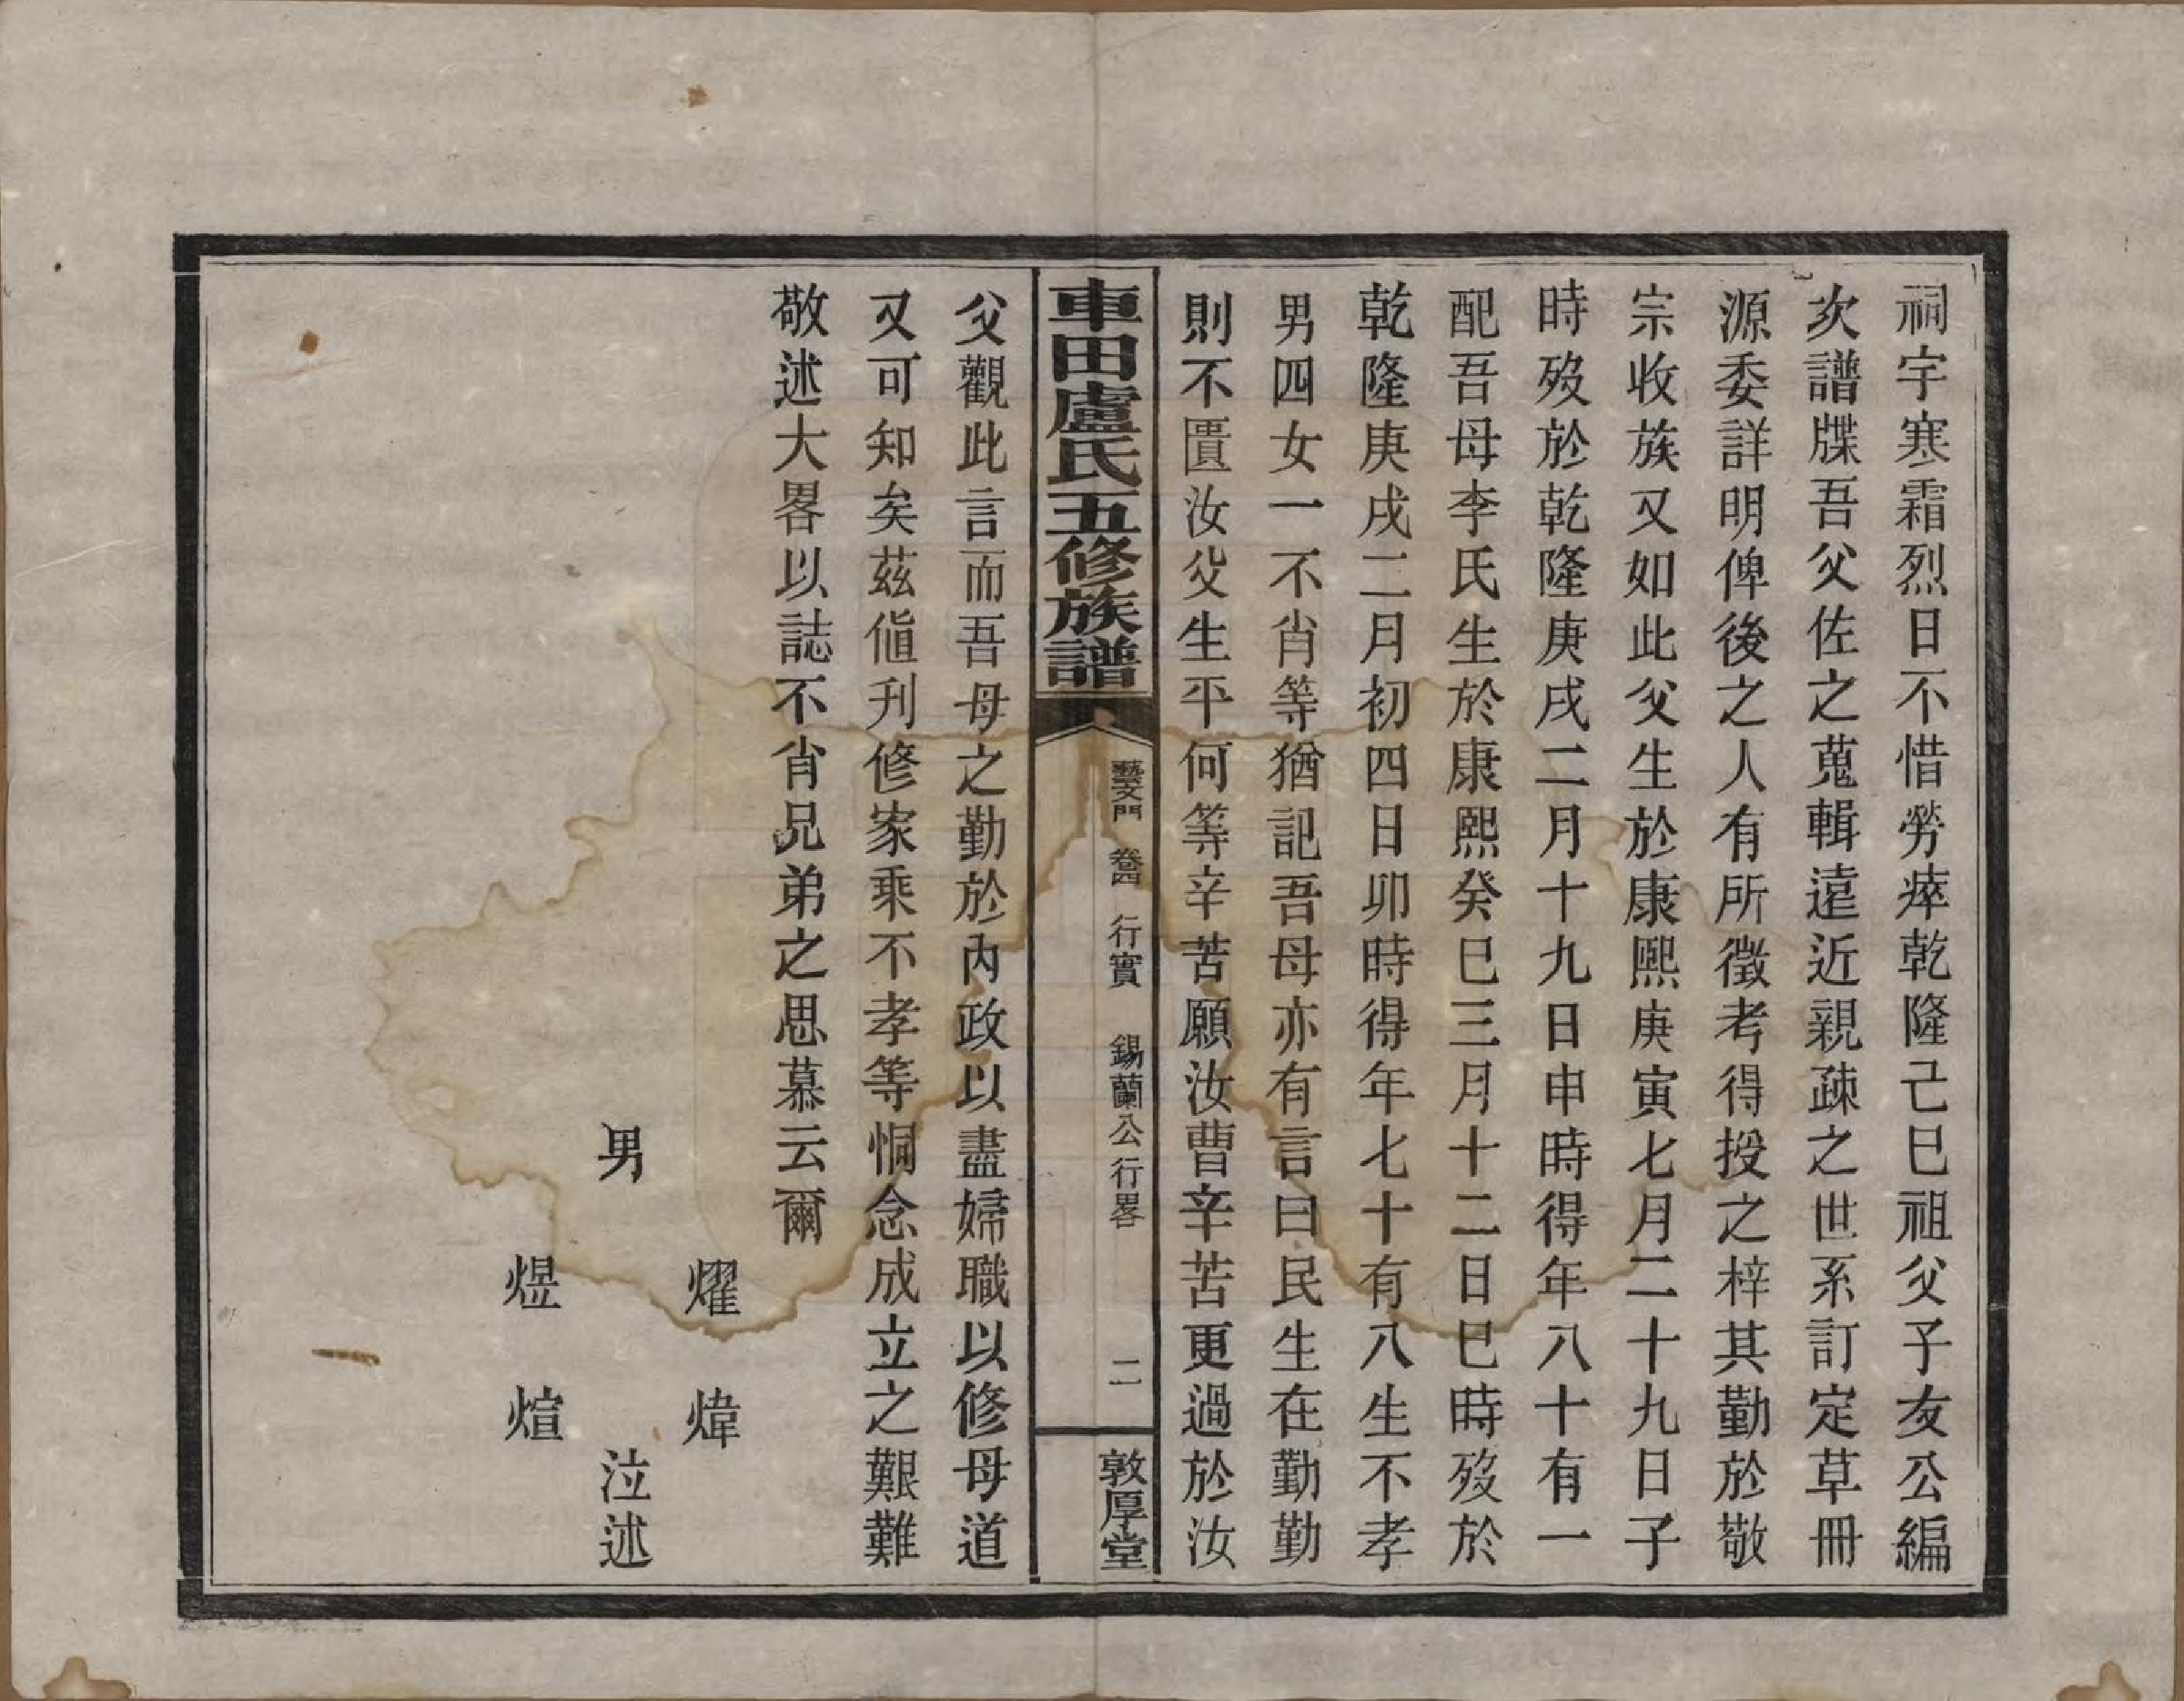 祠宇寒霜烈日不惜勞瘁乾隆己巳祖父子友公編
次譜牒吾父佐之蒐輯遠近親疎之世系訂定草冊
源委詳明俾後之人有所徵考得投之梓其勤於敬
宗收族又如此父生於康熙庚寅七月二十九日子
時歿於乾隆庚戌二月十九日申時得年八十有一
配吾母李氏生於康熙癸巳三月十二日巳時歿於
乾隆庚戌二月初四日卯時得年七十有八生不孝
男四女一不肖等猶記吾母亦有言曰民生在勤勤
則不匱汝父生平何等辛苦願汝曹辛苦更過於汝
車田盧氏五修族譜
藝文門　卷四　行實　錫蘭公行畧　二
敦厚堂
父觀此言而吾母之勤於內政以盡婦職以修母道
又可知矣茲值刋修家乘不孝等恫念成立之艱難
敬述大畧以誌不肖兄弟之思慕云爾
燿　煒
男　泣述
煜　煊